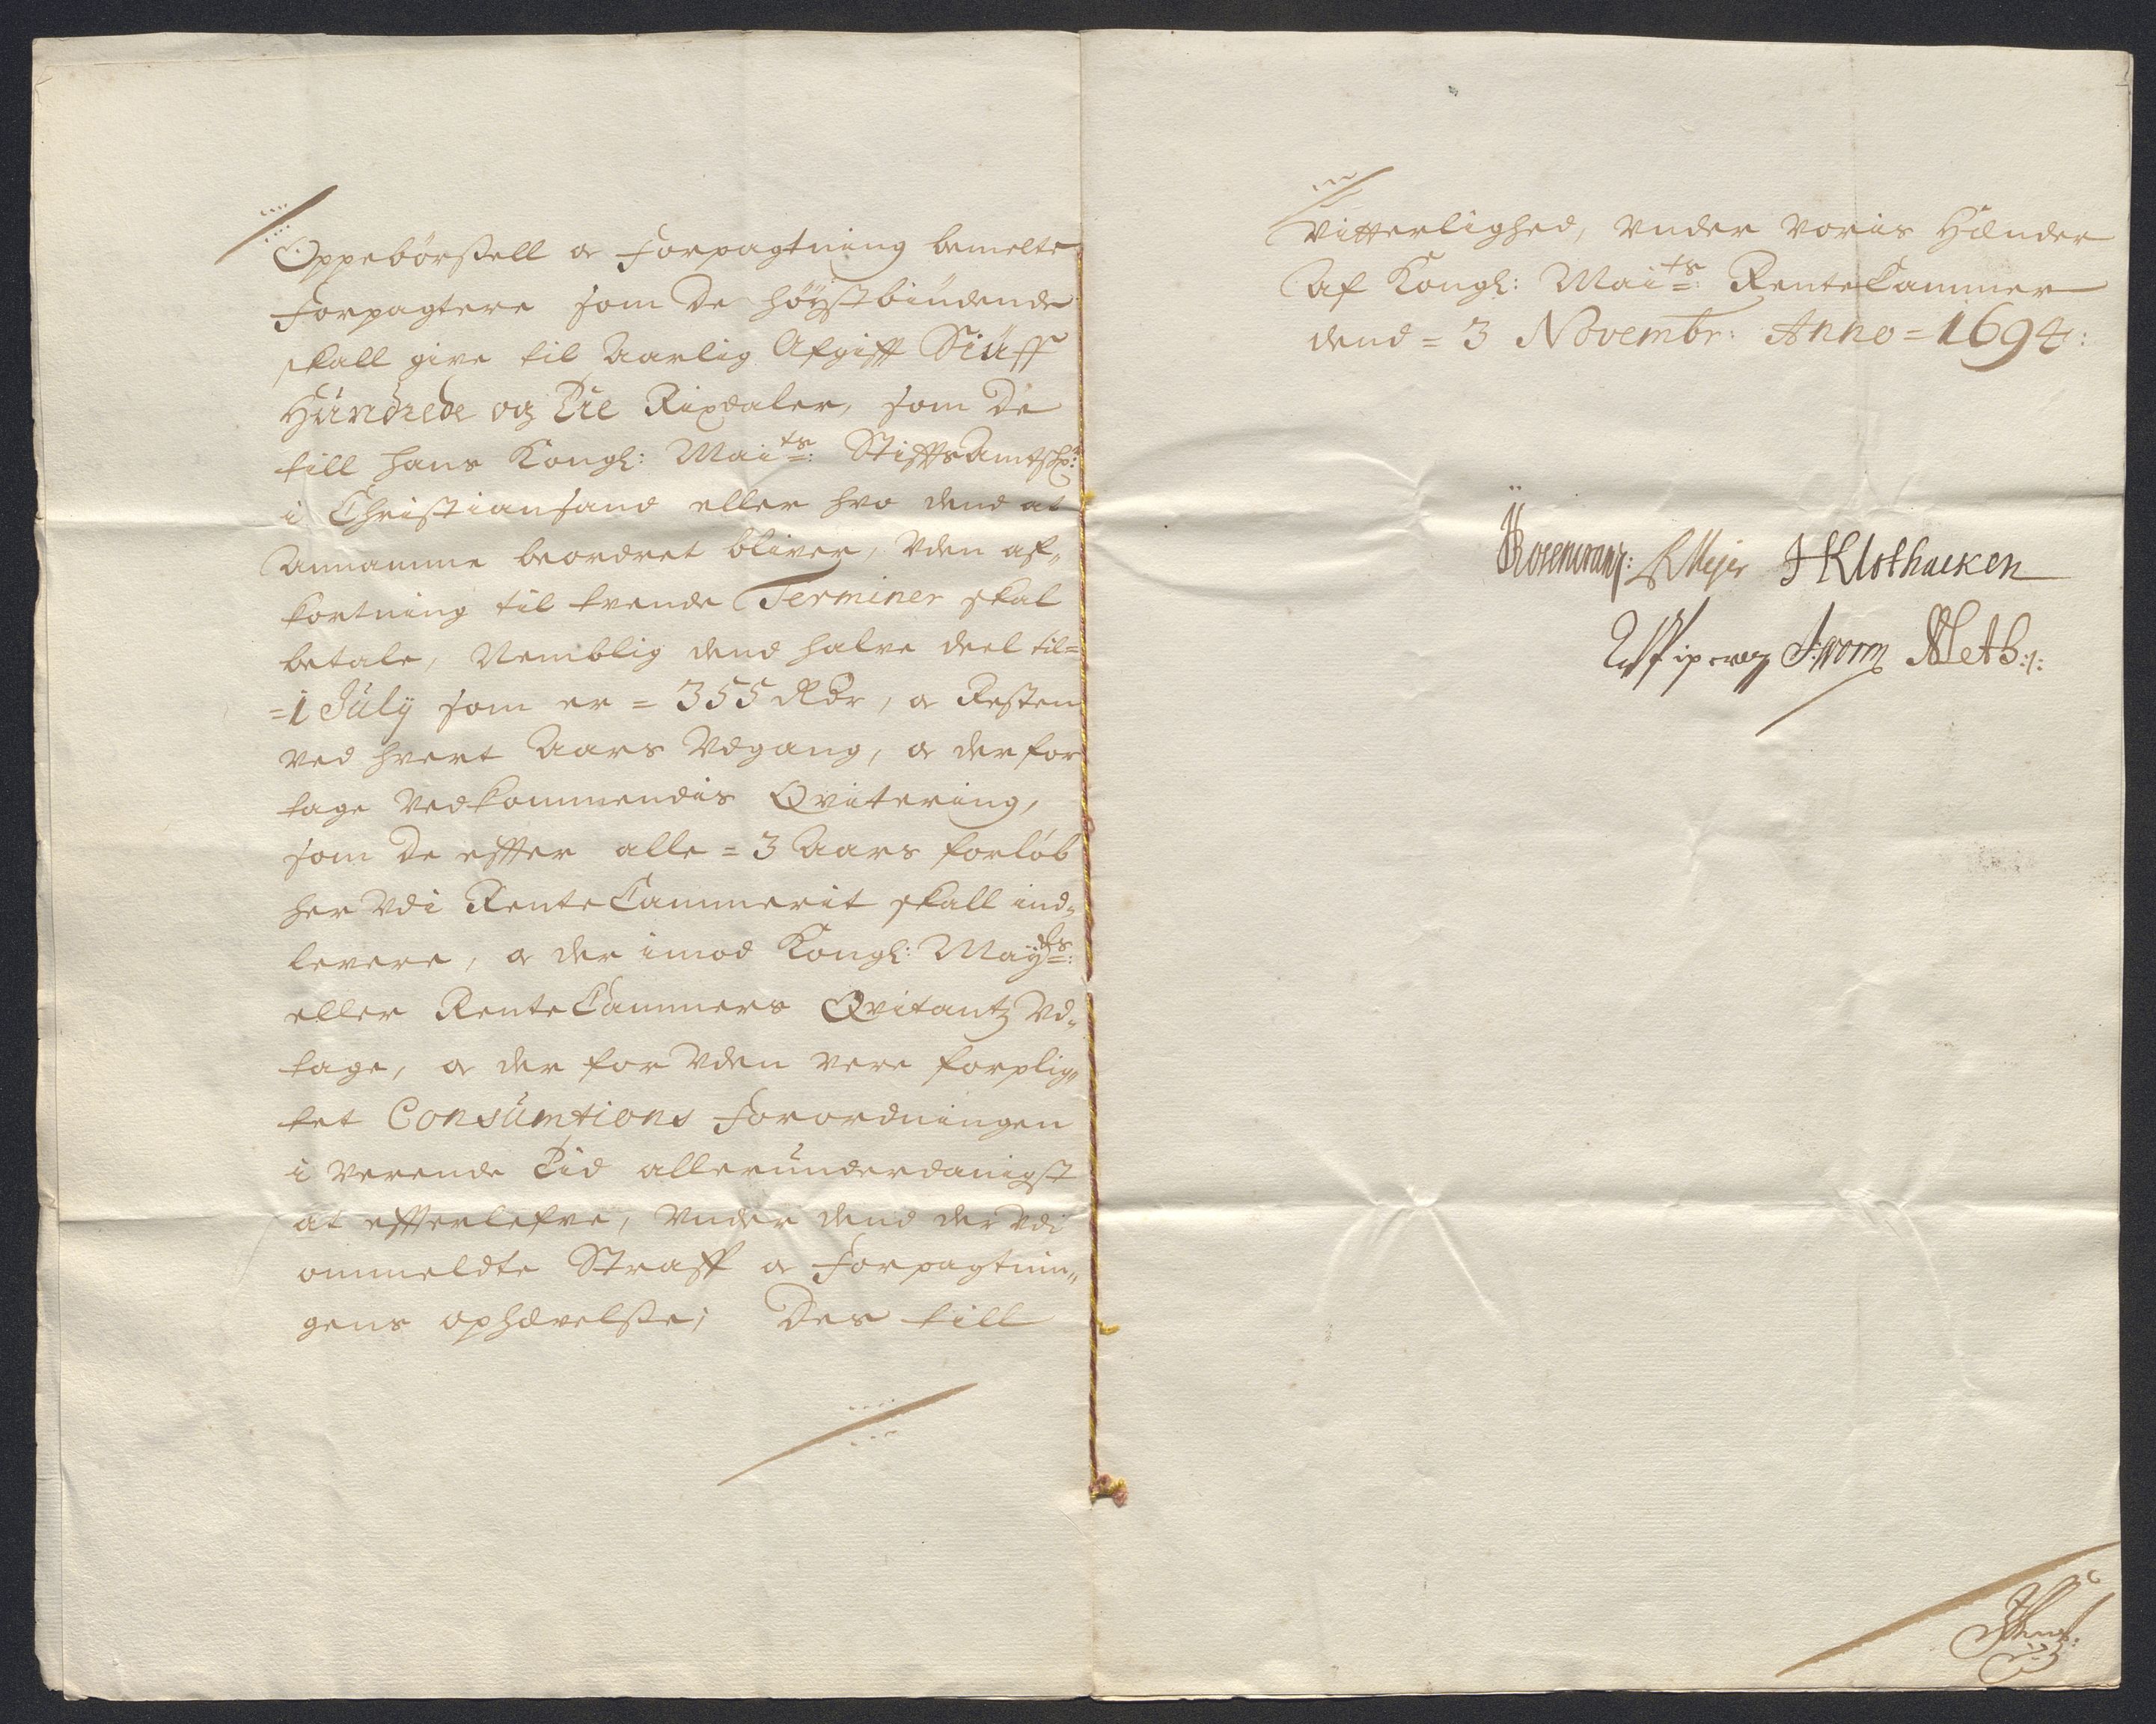 Oppebörßell og Forpagtning bemelte
Forpagtere som de höystbiudende
skall give til Aarlig Afgifft Siüff
Hündrede og Tie Rixdaler, som de
till hans Kongl: Maits: StifftsAmtskr:
i Christiansand eller hvo dend at
Annamme beordret bliver, Uden af„
kortning til tvende Terminer skal
betale, Nemblig dend halve deel til=
=1 Jüly som er = 355 Rdr, og Resten
ved hvert Aars Udgang, og derfor
tage Vedkommendis Qvitering,
som de effter alle = 3 Aars forlöb
her Udi RenteCammerit skall ind„
levere, og der imod Kongl: Mayts:
eller RenteCammers Qvitantz Ud„
tage, og der for Uden vere forplig„
tet Consümtions Forordningen
i verende Tid alleründerdanigst
at effterlefve, Under dend der Udi
ommeldte Straff og Forpagtnin„
gens ophævelße; Des till
Vitterlighed, Under voris Hænder
Af Kongl: Maits: RenteCammer
dend = 3 Novembr: Anno = 1694:
Rosencrantz: Meyer H Klothacken
J: Worm